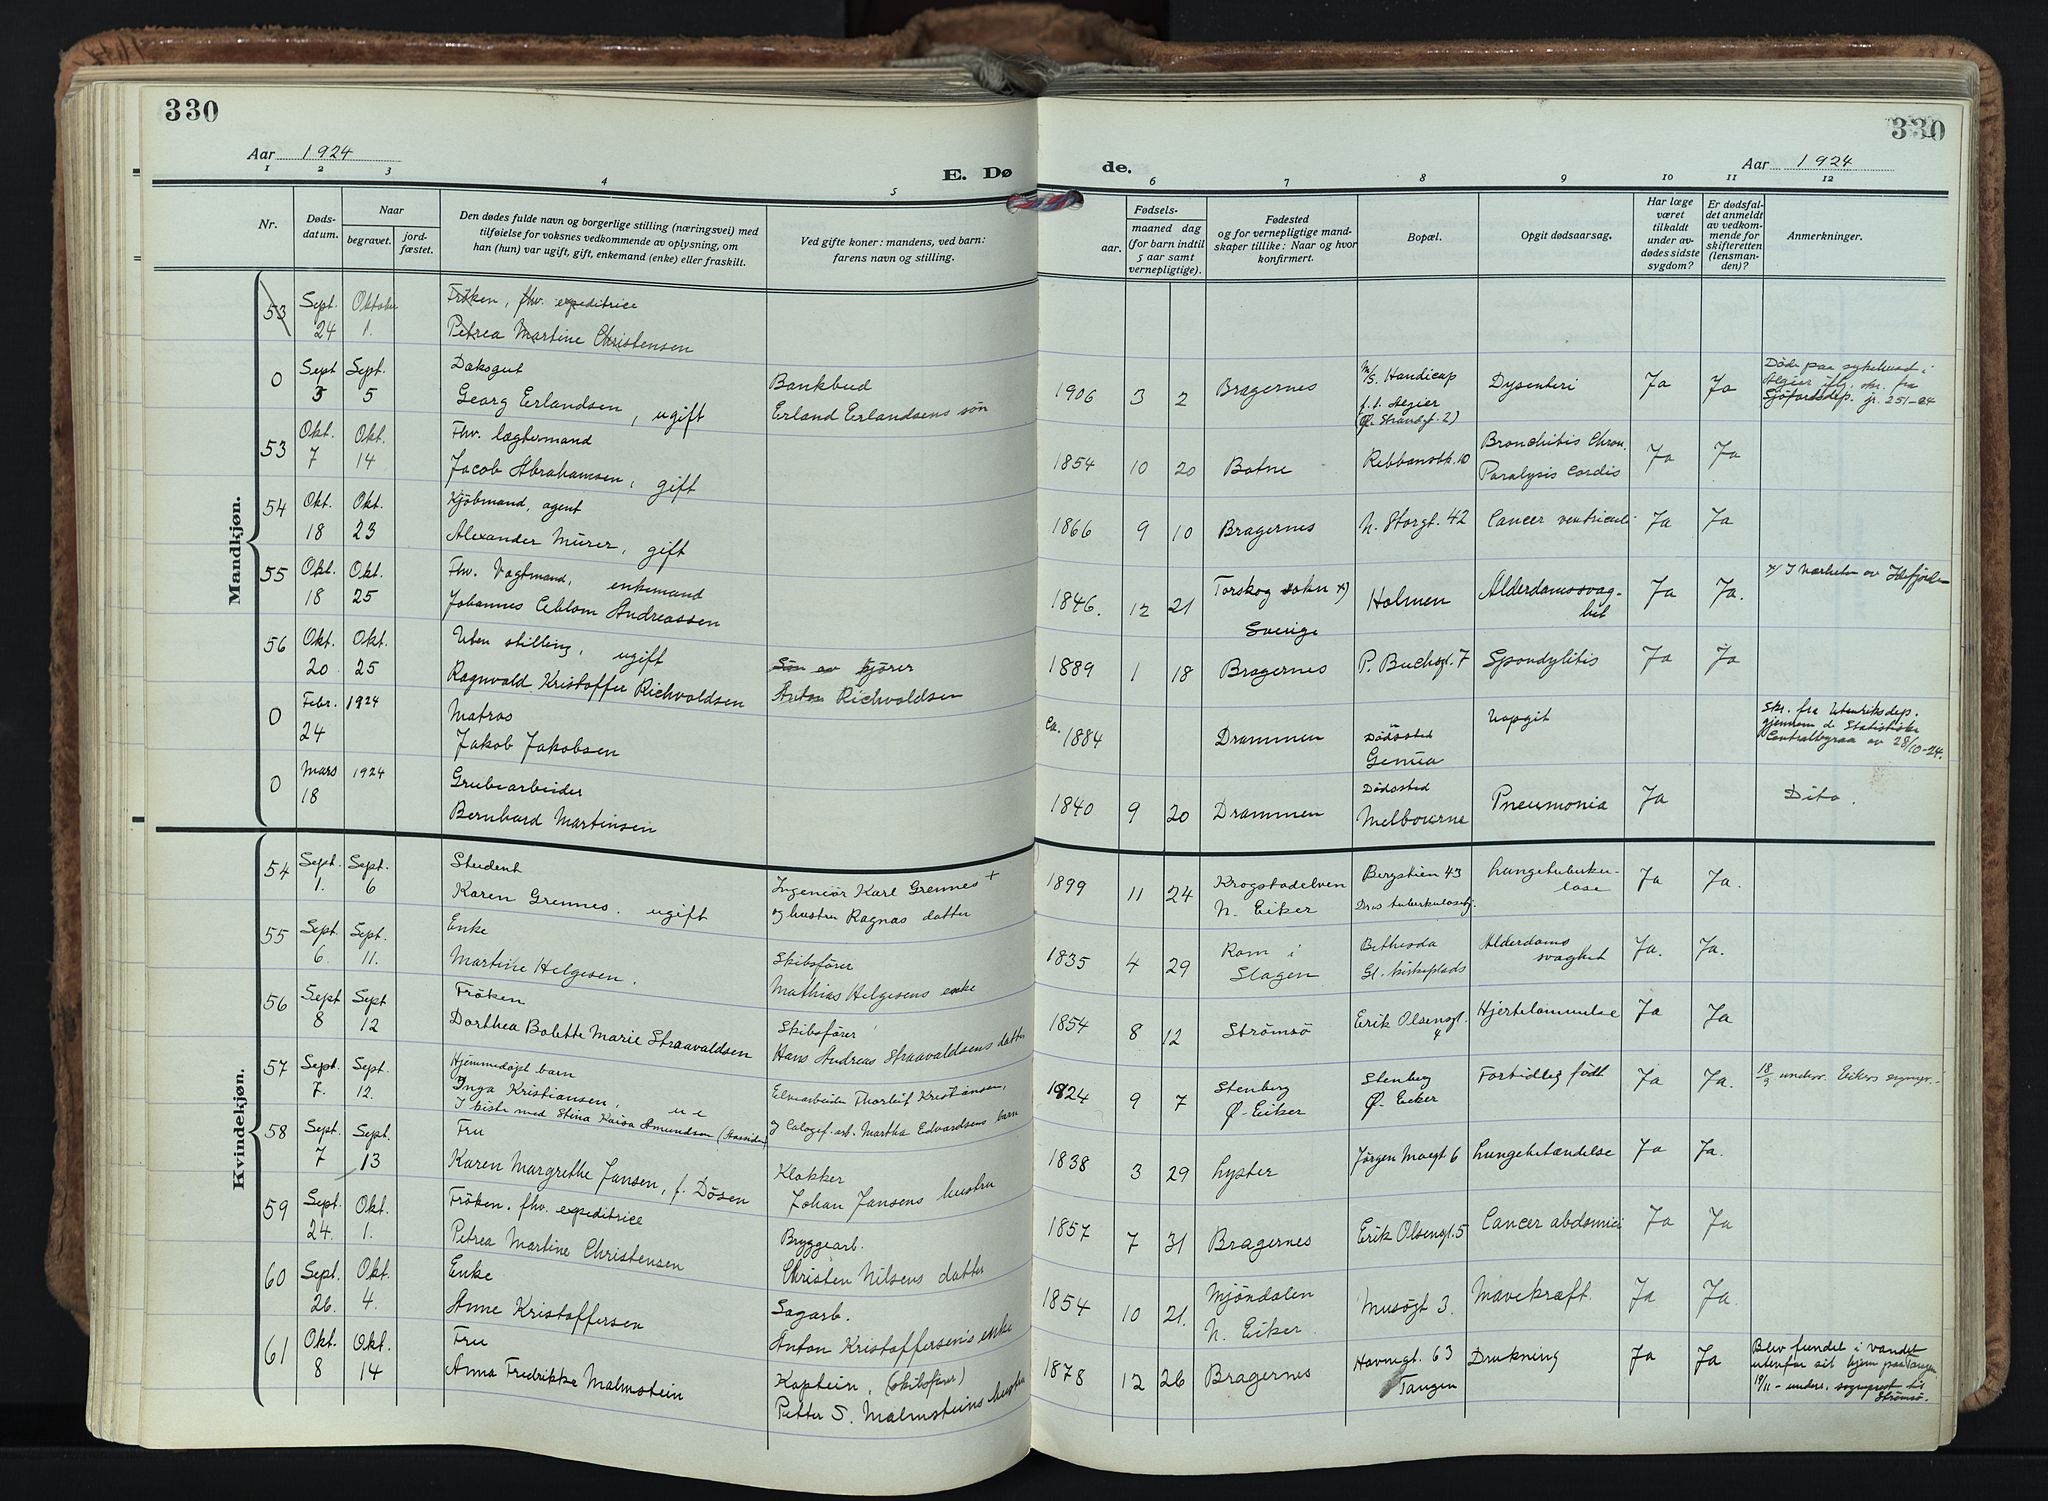 330
Aar 1924
E. Dø
1 2 3 4 5
Nr.
Døds-
datum.
Naar
begravet.
jord-
fæstet.
Den dødes fulde navn og borgerlige stilling (næringsvei) med
tilføielse for voksnes vedkommende av oplysning, om
han (hun) var ugift, gift, enkemand (enke) eller fraskilt.
Ved gifte koner: mandens, ved barn:
farens navn og stilling.
Mandkjøn.
53 Sept. Oktober Frøken, fhv. expeditrice
24 1. Petrea Martine Christensen
0 Sept Sept. Daksgut Bankbud
3 5 Georg Erlandsen, ugift Erland Erlandsens søn
53 Okt. Okt. Fhv. lægtermand
7 14 Jacob Abrahamsen, gift
54 Okt. Okt. Kjøbmand, agent
18 23 Alexander Mürer, gift
55 Okt. Okt. Fhv. Vagtmand, enkemand
18 25 Johannes Andreassen
56 Okt. Okt. Uten stilling, ugift Søn av kjører
20 25 Ragnvald Kristoffer Richvoldsen Anton Richvoldsen
0 Febr. 1924 Matros
24 Jakob Jakobsen
0 Mars 1924 Grubearbeider
18 Bernhard Martinsen
Kvindekjøn.
54 Sept. Sept. Student Ingeniør Karl Grennes +
1. 6 Karen Grennes. ugift og hustru Ragnas datter
55 Sept. Sept. Enke Skibsfører
6. 11. Martine Helgesen. Mathias Helgesens enke
56 Sept Sept Frøken Skibsfører
8 12 Dorthea Bolette Marie Straavaldsen Hans Andreas Straavaldsens datter
57 Sept. Sept. Hjemmedøpt barn Elvearbeider Thorleif Kristiansen,
7. 12. Inga Kristiansen, u e og Martha Edvardsens barn
I kiste med Stina Kaisa Amundsen
58 Sept. Sept. Fru Klokker
7 13 Karen Margrethe Jansen, f. Døsen Johan Jansens hustru
59 Sept. Okt. Frøken. fhv. expeditrice Bryggearb.
24. 1. Petrea Martine Christensen Christen Nilsens datter
60 Sept. Okt. Enke Sagarb.
26. 4. Anne Kristoffersen Anton Kristoffersen's enke
61 Okt. Okt. Fru Kaptein, (skibsfører)
8 14 Anna Fredrikke Malmstein Petter S. Malmsteins hustru
330
Aar 1924
de.
6 7 8 9 10 11 12
Fødsels-
aar. maaned dag
(for barn indtil
5 aar samt
vernepligtige).
Fødested
og for vernepligtige mand-
skaper tillike: Naar og hvor
konfirmert.
Bopæl.
Opgit dødsaarsag.
Har læge
været
tilkaldt
under av-
dødes sidste
sygdom?
Er dødsfal-
det anmeldt
av vedkom-
mende for
skifteretten
(lensman-
den)?
Anmerkninger.
1906 3 2 Bragernes M/S. Handicap Dysenteri Ja Ja Døde paa sykehuset i
f. t. Algier Algier iflg. skr. fra
(Ø. Strandgt. 2) Sjøfartsdep. jr. 251-24
1854 10 20 Botne Ribbanstk. 10 Bronchitis Chron. Ja Ja
Paralysis Cordis
1866 9 10 Bragernes N. Storgt. 42 Cancer ventriculi Ja Ja
1846. 12 21 Torskog sokn x) Holmen Alderdomssvag- Ja Ja. x/ I nærheten av Idefjorden
Sverige het
1889 1 18 Bragernes P. Buchsgt. 7 Spondylitis Ja Ja
ca. 1884 Drammen Dødssted Uopgit Skr. fra Utenriksdep.
Genua gjennem de Statistiske
Centralbyraa av 28/10-24.
1840 9 20 Drammen Dødssted Pneumonia Ja Dito.
Melbourne
1899 11 24 Krogstadelven Bergstien 43 Lungetuberku- Ja Ja.
N. Eiker lose
1835 4 29 Rom i Bethesda Alderdoms Ja. Ja.
Slagen Gl. kirkeplads svaghet
1854 8 12 Strømsø Erik Olsensgt. 4 Hjertelammelse Ja Ja
1924 9 7 Stenberg Stenberg Fortidlig født Ja Ja. 18/9 underr. Eikers sognepr.
Ø. Eiker Ø. Eiker
1838 3 29 Lyster Jørgen Moegt 6 Lungebetændelse Ja Ja.
1857 7 31 Bragernes Erik Olsensgt. 5 Cancer abdomini Ja Ja
1854 10 21. Mjøndalen Musøgt 3. Mavekræft. Ja Ja.
N. Eiker.
1878 12 26 Bragernes Havnegt. 63 Drukning Ja Ja Blev fundet i vandet
Tangen utenfor sit hjem paa Tangen
19/11 - underr. sogneprest til
Strømsø.